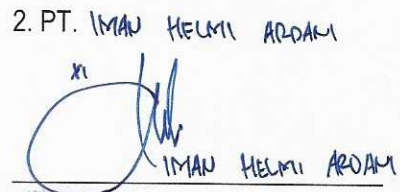 2. PT. IMAN HELMI ARDANI
XI
IMAN HELMI ARDANI